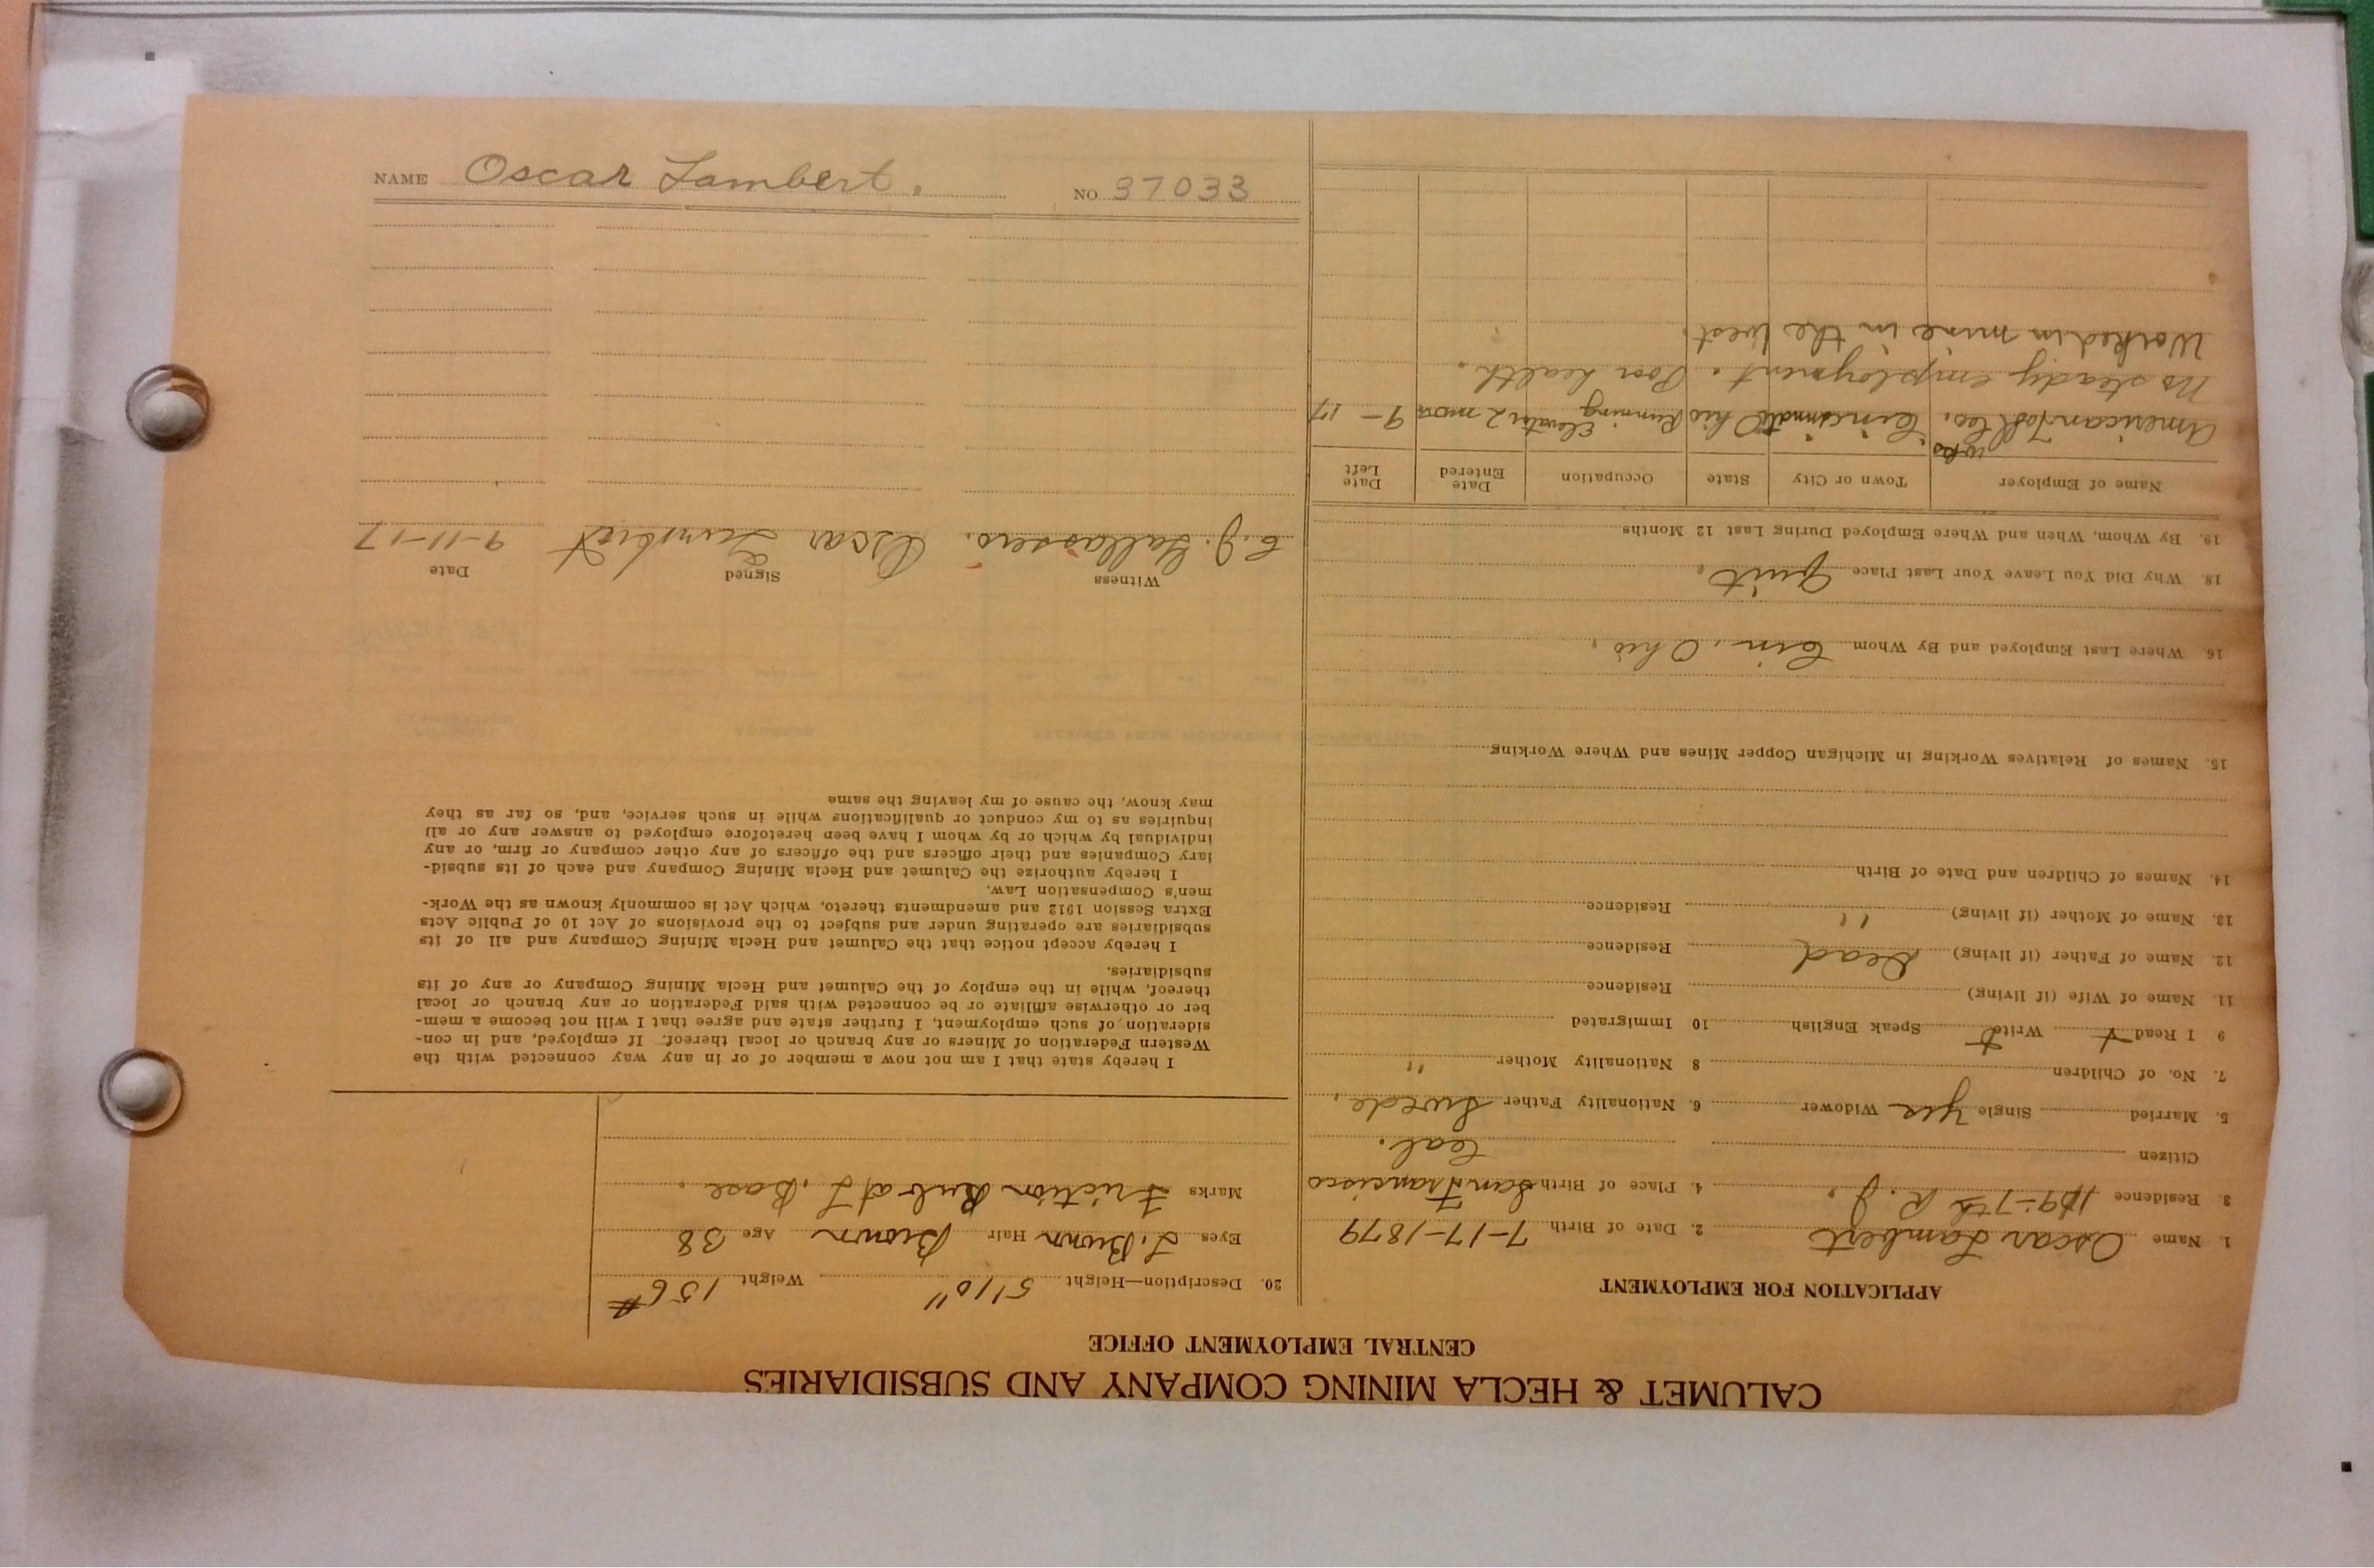 CALUMET & HECLA MINING COMPANY AND SUBSIDIARIES
CENTRAL EMPLOYMENT OFFICE
APPLICATION FOR EMPLOYMENT
1. Name Oscar Lambert 2. Date of Birth 7-17-1879
3 Residence 119-7th R. J. 4. Place of Birth San Francisco
Citizen Cal.
5. Married Single Yes Widower 6. Nationality Father Swede,
7. No. of Children 8 Nationality Mother "
9 I Read Write Speak English 10 Immigrated
11. Name of Wife (if living) Residence
12. Name of Father (if living) Dead Residence
13. Name of Mother (if living) " Residence
14. Names of Children and Date of Birth
15. Names of Relatives Working in Michigan Copper Mines and Where Working
16. Where Last Employed and By Whom Cin. Ohio.
18. Why Did You Leave Your Last Place Quit.
19. By Whom, When and Where Employed During Last 12 Months
Name of Employer Town or City State Occupation Date Entered Date Left
wks
American Co. Cincinnati Ohio Running Elevator 2 mon 9-17
No steady employment. Poor health.
Worked in mine in the West.
20. Description—Height 5'10" Weight 156#
Eyes L. Brown Hair Brown Age 38
Marks Friction Rub at L. Base.
I hereby state that I am not now a member of or in any way connected with the
Western Federation of Miners or any branch or local thereof. If employed, and in con-
sideration of such employment, I further state and agree that I will not become a mem-
ber or otherwise affiliate or be connected with said Federation or any branch or local
thereof, while in the employ of the Calumet and Hecla Mining Company or any of its
subsidiaries.
I hereby accept notice that the Calumet and Hecla Mining Company and all of its
subsidiaries are operating under and subject to the provisions of Act 10 of Public Acts
Extra Session 1912 and amendments thereto, which Act is commonly known as the Work-
men's Compensation Law.
I hereby authorize the Calumet and Hecla Mining Company and each of its subsid-
iary Companies and their officers and the officers of any other company or firm, or any
individual by which or by whom I have been heretofore employed to answer any or all
inquiries as to my conduct or qualifications while in such service, and, so far as they
may know, the cause of my leaving the same
Witness Signed Date
Oscar Lambert 9-11-17
NAME Oscar Lambert. NO 37033